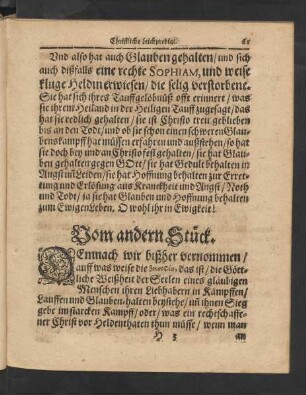 Christliche Leichpredigt. 61
Vnd also hat auch Glauben gehalten / und sich
auch dißfalls eine rechte SOPHIAM, und weise
kluge Heldin erwiesen / die selig verstorbene.
Sie hat sich ihres Tauffgelöbnüß offt erinnert / was
sie ihrem Heiland in der Heiligen Tauff zugesagt / das
hat sie redlich gehalten / sie ist Christo treu geblieben
bis an den Todt / und ob sie schon einen schweren Glau-
benskampff hat müssen erfahren und außstehen / so hat
sie doch bey und an Christo fest gehalten / sie hat Glau-
ben gehalten gegen GOtt / sie hat Gedult behalten in
Angst uñ Leiden / sie hat Hoffnung behalten zur Erret-
tung und Erlösung aus Kranckheit und Angst / Noth
und Todt / ja sie hat Glauben und Hoffnung behalten
zum Ewigen Leben. O wohl ihr in Ewigkeit!
Vom andern Stück.
DEmnach wir bißher vernommen /
auff was weise die das ist / die Gött-
liche Weißheit der Seelen eines gläubigen
Menschen ihren Liebhabern in Kämpffen /
Lauffen und Glauben-halten beystehe / uñ ihnen Sieg
gebe im starcken Kampff / oder / was ein rechtschaffe-
ner Christ vor Heldenthaten thun müsse / wenn man
H 3 am